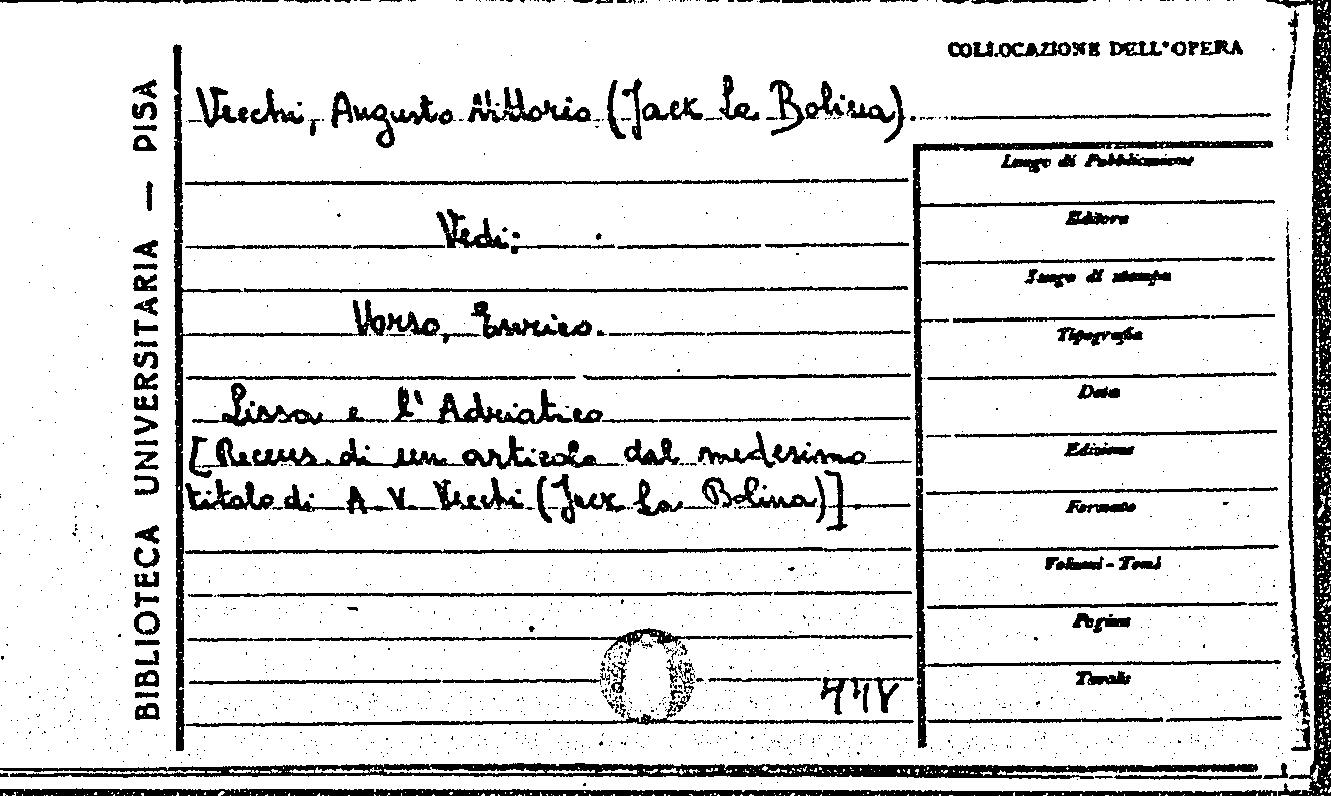 COLLOCAZIONE DELL'OPERA
BIBLIOTECA UNIVERSITARIA — PISA
Vecchi, Augusto Vittorio (Jack la Bolina).
Vedi:
Varso, Enrico.
Lissa e l'Adriatico
[Recens. di un articolo dal medesimo
titolo di A. V. Vecchi (Jack La Bolina)].
Luogo di Pubblicazione
Editore
Luogo di stampa
Tipografia
Data
Edizione
Formato
Volumi - Tomi
Pagine
Tavole